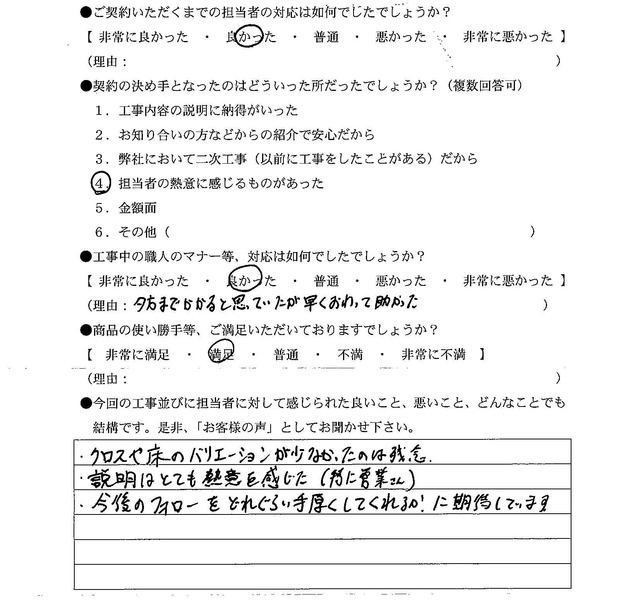 ●ご契約いただくまでの担当者の対応は如何でしたでしょうか？
【 非常に良かった ・ 良かった ・ 普通 ・ 悪かった ・ 非常に悪かった 】
（理由： ）
●契約の決め手となったのはどういった所だったでしょうか？（複数回答可）
1．工事内容の説明に納得がいった
2．お知り合いの方などからの紹介で安心だから
3．弊社において二次工事（以前に工事をしたことがある）だから
4．担当者の熱意に感じるものがあった
5．金額面
6．その他（ ）
●工事中の職人のマナー等、対応は如何でしたでしょうか？
【 非常に良かった ・ 良かった ・ 普通 ・ 悪かった ・ 非常に悪かった 】
（理由：夕方までかかると思っていたが早くおわって助かった ）
●商品の使い勝手等、ご満足いただいておりますでしょうか？
【 非常に満足 ・ 満足 ・ 普通 ・ 不満 ・ 非常に不満 】
（理由： ）
●今回の工事並びに担当者に対して感じられた良いこと、悪いこと、どんなことでも
結構です。是非、「お客様の声」としてお聞かせ下さい。
・クロスや床のバリエーションが少なかったのは残念.
・説明はとても熱意を感じた（特に営業さん）
・今後のフォローをどれぐらい手厚くしてくれるか!に期待しています